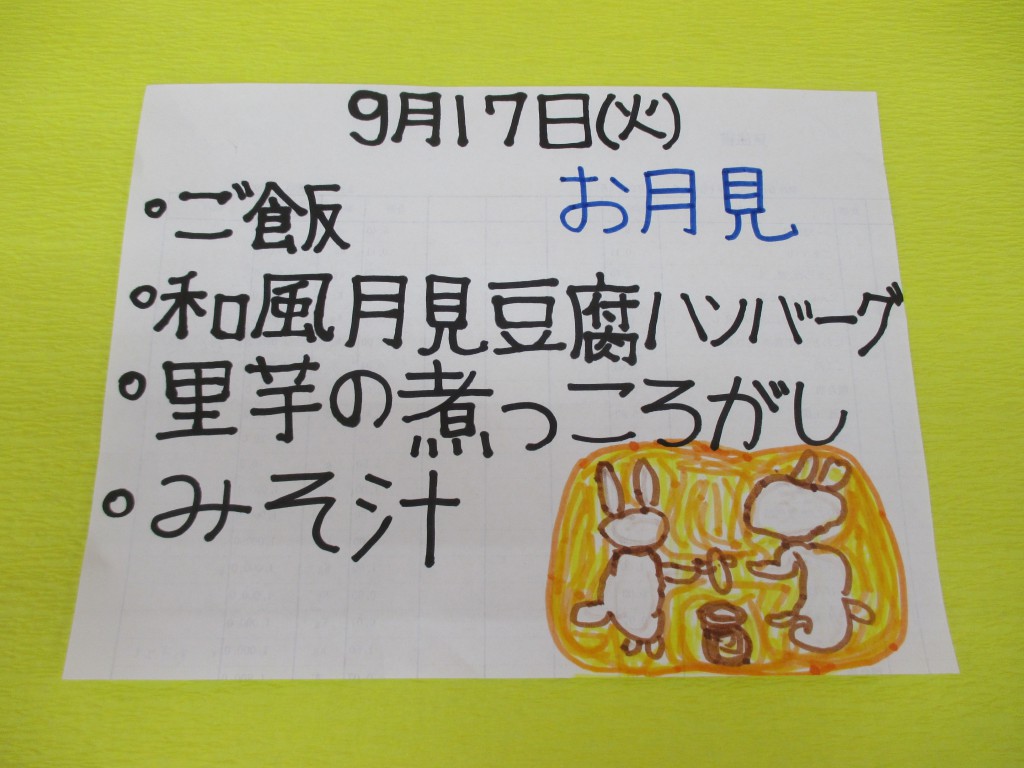 9月17日(火)
お月見
・ご飯
・和風月見豆腐ハンバーグ
・里芋の煮っころがし
・みそ汁